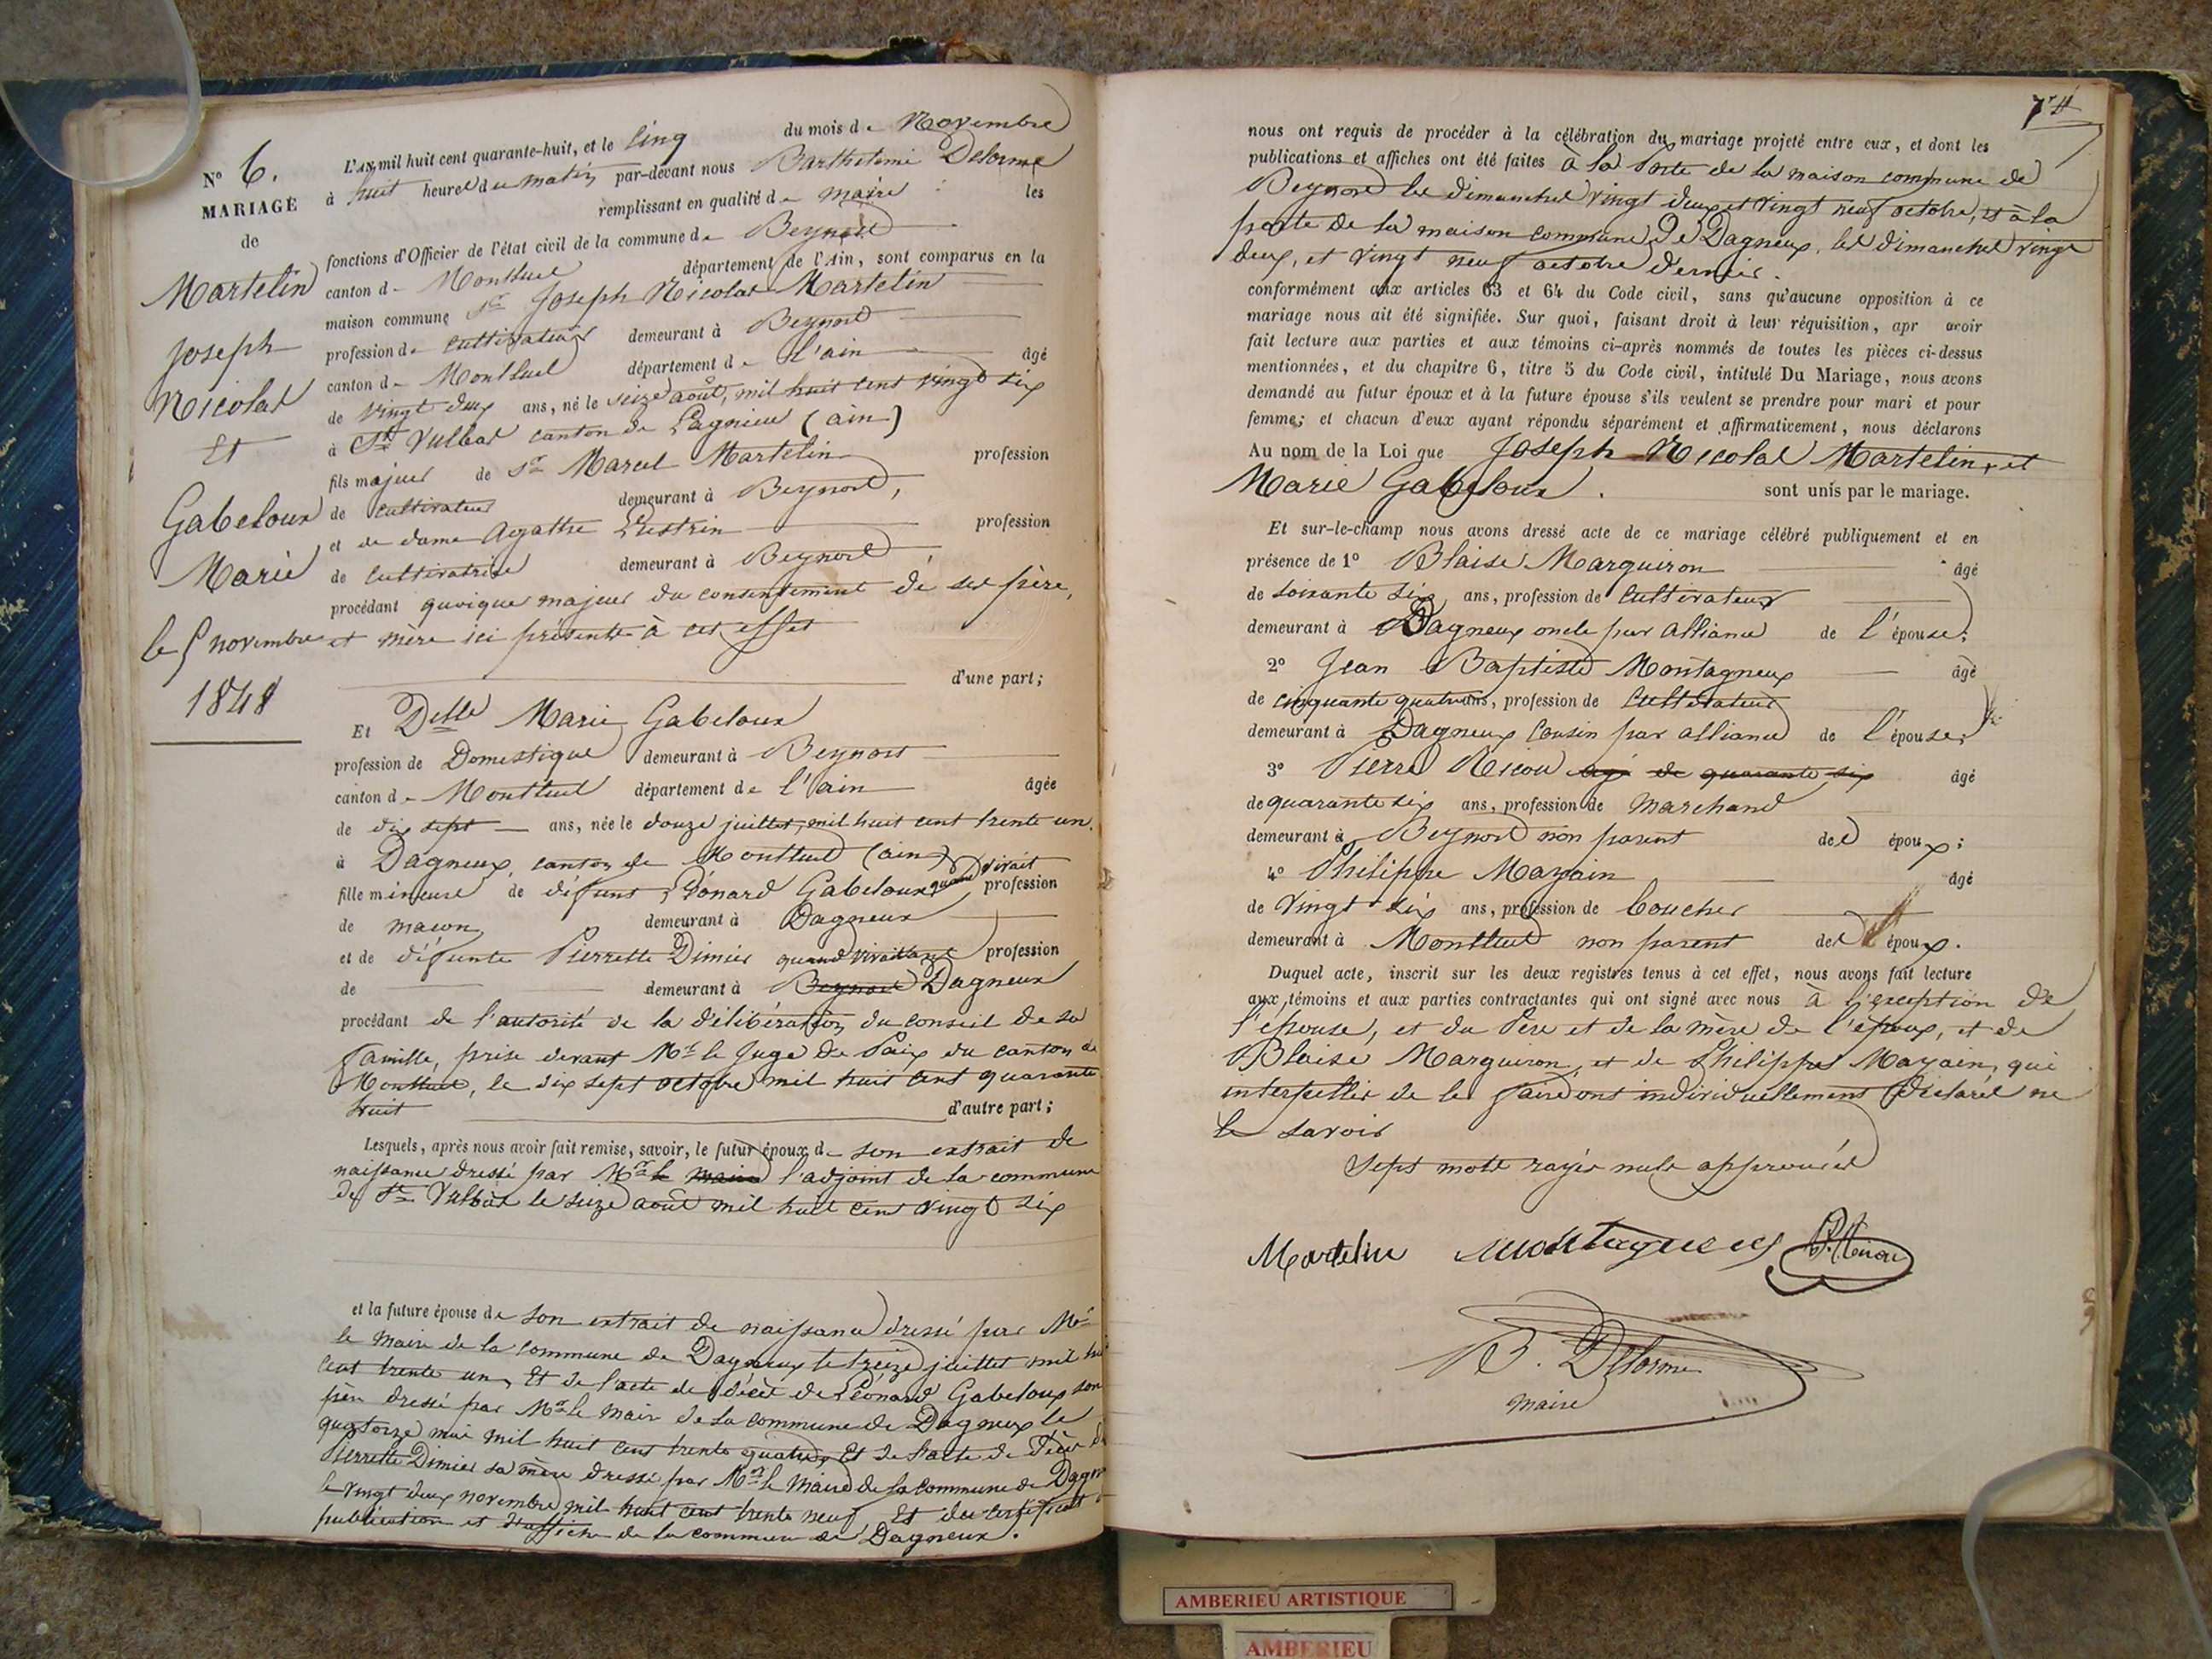 N° 6.
MARIAGE
de
Martelin
Joseph
Nicolas
Et
Gabeloux
Marie
le 5 novembre
1848
L'AN mil huit cent quarante-huit, et le Cinq du mois de Novembre
à huit heures du matin par-devant nous Barthélemi Delorme
remplissant en qualité de maire les
fonctions d'Officier de l'état civil de la commune de Beynost
canton de Montluel département de l'Ain, sont comparus en la
maison commune Sr Joseph Nicolas Martelin
profession de Cultivateur demeurant à Beynost
canton de Montluel département de L'ain âgé
de vingt deux ans, né le seize août, mil huit cent vingt six
à St Vulbas canton de Lagnieu (ain)
fils majeur de Sr Marcel Martelin profession
de Cultivateur demeurant à Beynost,
et de dame Agathe profession
de Cultivatrice demeurant à Beynost
procédant quoique majeur du consentement de ses père,
et mère ici présents à cet effet
d'une part;
Et Delle Marie Gabeloux
profession de Domestique demeurant à Beynost
canton de Montluel département de l'ain âgée
de dix sept ans, née le douze juillet, mil huit cent trente un,
à Dagneux, canton de Montluel (ain)
fille mineure de défunt Léonard Gabeloux quand vivait profession
de maçon demeurant à Dagneux
et de défunte Pierrette Dimier quand vivait profession
de demeurant à Beynost Dagneux
procédant de l'autorité de la délibération du conseil de sa
famille, prise devant Mr le Juge de Paix du canton de
Montluel, le dix sept octobre mil huit cent quarante
huit d'autre part;
Lesquels, après nous avoir fait remise, savoir, le futur époux de son extrait de
naissance dressé par Mr le maire l'adjoint de la commune
de St Vulbas le seize août mil huit cent vingt six
et la future épouse de son extrait de naissance dressé par Mr
le maire de la commune de Dagneux le treize juillet mil hui
cent trente un, Et de l'acte de décès de Léonard Gabeloux son
père dressé par Mr le maire de la commune de Dagneux le
quatorze mai mil huit cent trente quatre, Et de l'acte de décès de
Pierrette Dimier sa mère dressé par Mr le Maire de la commune de Dagn
le vingt deux novembre mil huit cent trente neuf Et du certificat
publication et d'affiche de la commune de Dagneux.
nous ont requis de procéder à la célébration du mariage projeté entre eux, et dont les
publications et affiches ont été faites à la Porte de la maison commune de
Beynost les dimanches vingt deux et vingt neuf octobre, et à la
porte de la maison commune de Dagneux, les dimanches vingt
deux, et vingt neuf octobre dernier.
conformément aux articles 63 et 64 du Code civil, sans qu'aucune opposition à ce
mariage nous ait été signifiée. Sur quoi, faisant droit à leur réquisition, apr avoir
fait lecture aux parties et aux témoins ci-après nommés de toutes les pièces ci-dessus
mentionnées, et du chapitre 6, titre 5 du Code civil, intitulé Du Mariage, nous avons
demandé au futur époux et à la future épouse s'ils veulent se prendre pour mari et pour
femme; et chacun d'eux ayant répondu séparément et affirmativement, nous déclarons
Au nom de la Loi que Joseph Nicolas Martelin, et
Marie Gabeloux. sont unis par le mariage.
Et sur-le-champ nous avons dressé acte de ce mariage célébré publiquement et en
présence de 1° Blaise Marguiron âgé
de soixante six ans, profession de Cultivateur
demeurant à Dagneux oncle par alliance de l'épouse;
2° Jean Baptiste Montagneux âgé
de cinquante quatre ans, profession de Cultivateur
demeurant à Dagneux Cousin par alliance de l'épouse;
3° Pierre Nicou âgé de quarante six âgé
de quarante six ans, profession de Marchand
demeurant à Beynost non parent des époux;
4° Philippe Mazain âgé
de vingt six ans, profession de boucher
demeurant à Montluel non parent des époux.
Duquel acte, inscrit sur les deux registres tenus à cet effet, nous avons fait lecture
aux témoins et aux parties contractantes qui ont signé avec nous à l'exception de
l'épouse, et du Père et de la mère de l'époux, et de
Blaise Marguiron, et de Philippe Mazain, qui
interpellés de le faire ont individuellement déclaré ne
le savoir
Sept mots rayés nuls approuvés
Martelin Montagneux
B. Delorme
maire
AMBERIEU ARTISTIQUE
AMBERIEU